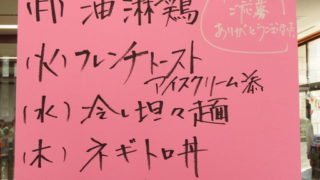 (月) 油淋鶏
ご応募
ありがとうございます
(火) フレンチトースト
アイスクリーム添
(水) 冷し坦々麺
(木) ネギトロ丼